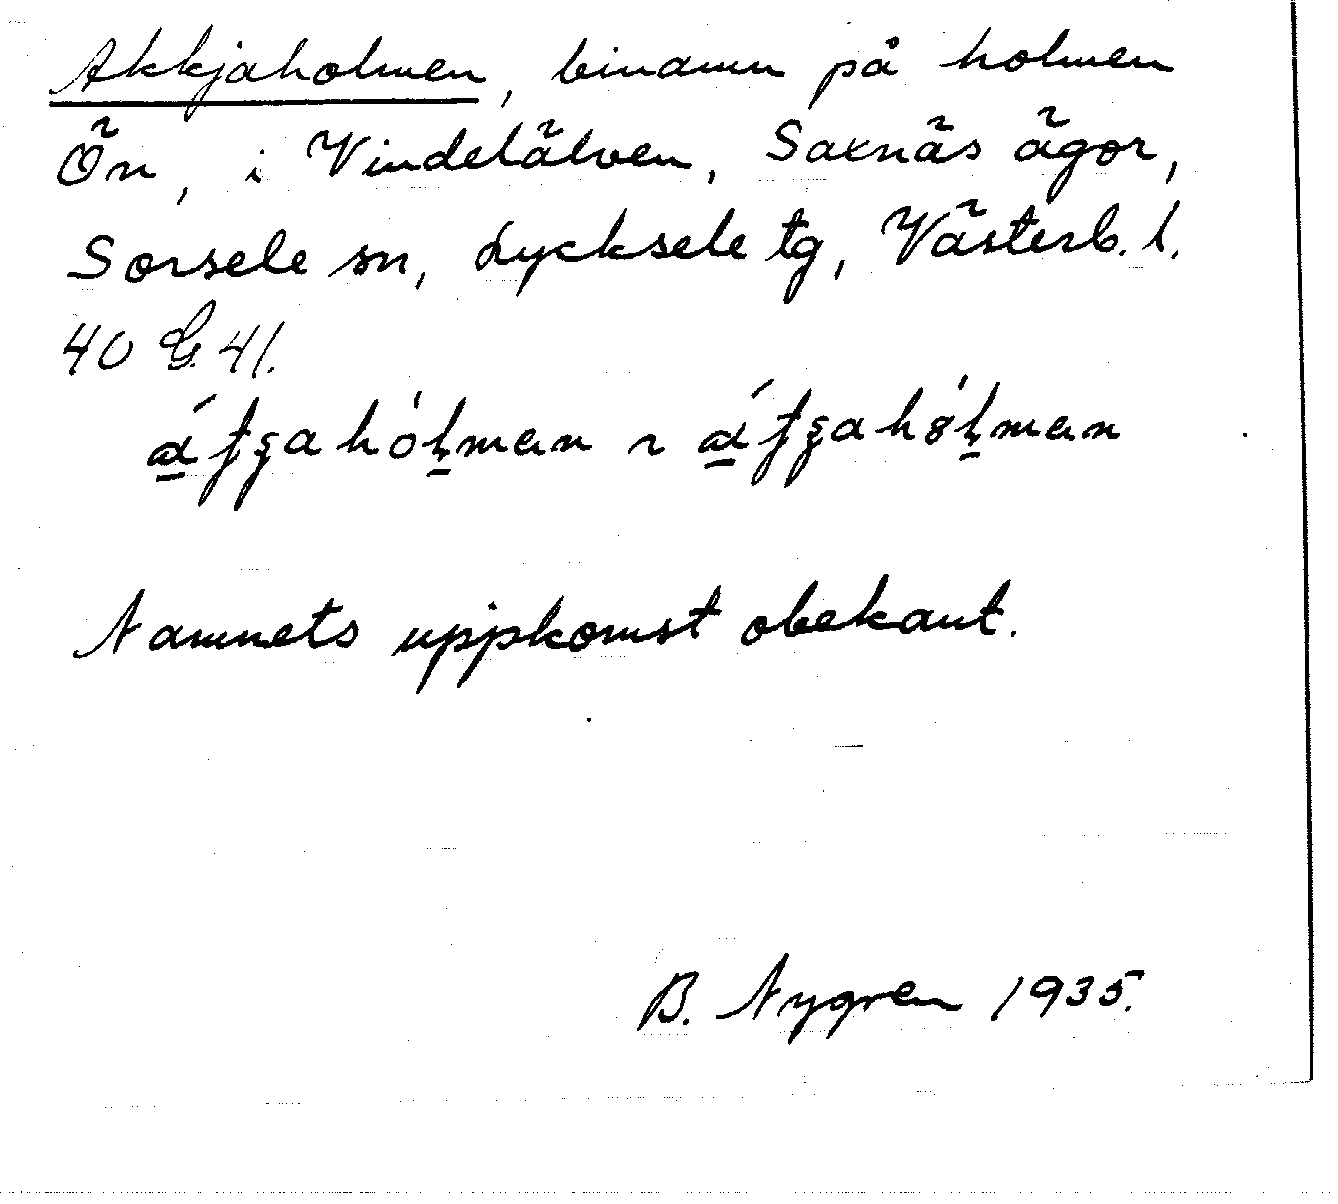 Akkjaholmen, binamn på holmen
Ön, i Vindelälven, Saxnäs ägor,
Sorsele sn, Lycksele tg, Västerb. l.
40 G. 41.
Namnets uppkomst obekant.
B. Nygren 1935.